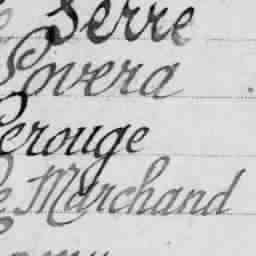 Serre
Povera
Perouge
Le Marchand